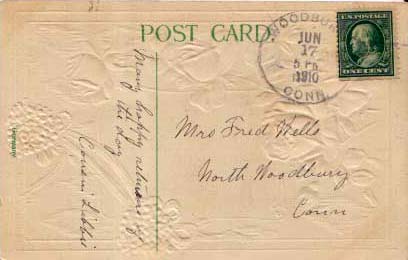 POST CARD
WOODBURY
JUN
17
5 PM
1910
CONN.
U.S. POSTAGE
ONE CENT
Many happy returns of
the day
Cousin Libbie
Mrs Fred Wells
North Woodbury
Conn